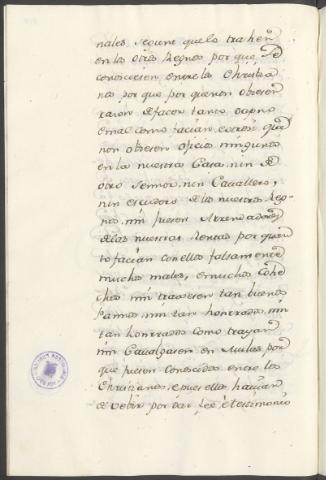 nales, segunt que lo trahen
en los otros Regnos por que se
conosciesen entre los Christia
nos por que por quanto obieron
razon de facer tanto danno
e mal como facian, e otrosi que
non obiesen oficio ninguno
en la nuestra Casa, nin de
otro Sennor, nin Cavallero,
nin escudero de los nuestros Reg-
nos, nin fuesen Arrendadores
de las nuestras Rentas por quan
to facian con ellos falsamente
muchos males, e muchos cohe
chos nin traxesen tan buenos
pannos, nin tan honrados, nin
tan honrados como trayan
nin Cavalgasen en Mulas, por
que fuesen conoscidos entre los
Christianos, e pues ellos havian
de vebir por dar fee, e testimonio